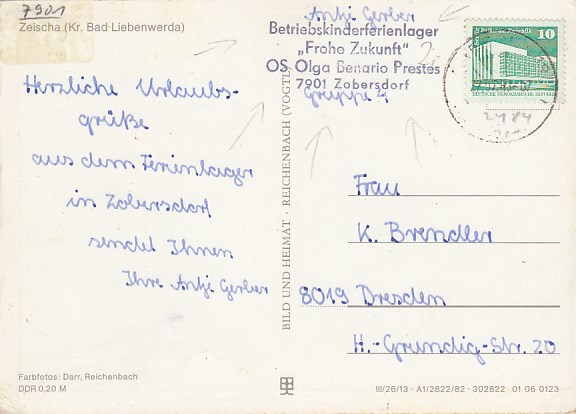 7901
Zeischa (Kr. Bad Liebenwerda)
Herzliche Urlaubs-
grüße
aus dem Ferienlager
in Zobersdorf
sendet Ihnen
Ihre Antje Gerber
Farbfotos: Darr, Reichenbach
DDR 0,20 M
BILD UND HEIMAT · REICHENBACH (VOGTL
Antje Gerber
Betriebskinderferienlager
„Frohe Zukunft"
OS Olga Benario Prestes
7901 Zobersdorf
Gruppe 4
10
DEUTSCHE DEMOKRATISCHE REPUBLIK
Frau
K. Brendler
8019 Dresden
H.-Grundig-Str. 20
III/26/13 · A1/2822/82 · 302822 01 06 0123